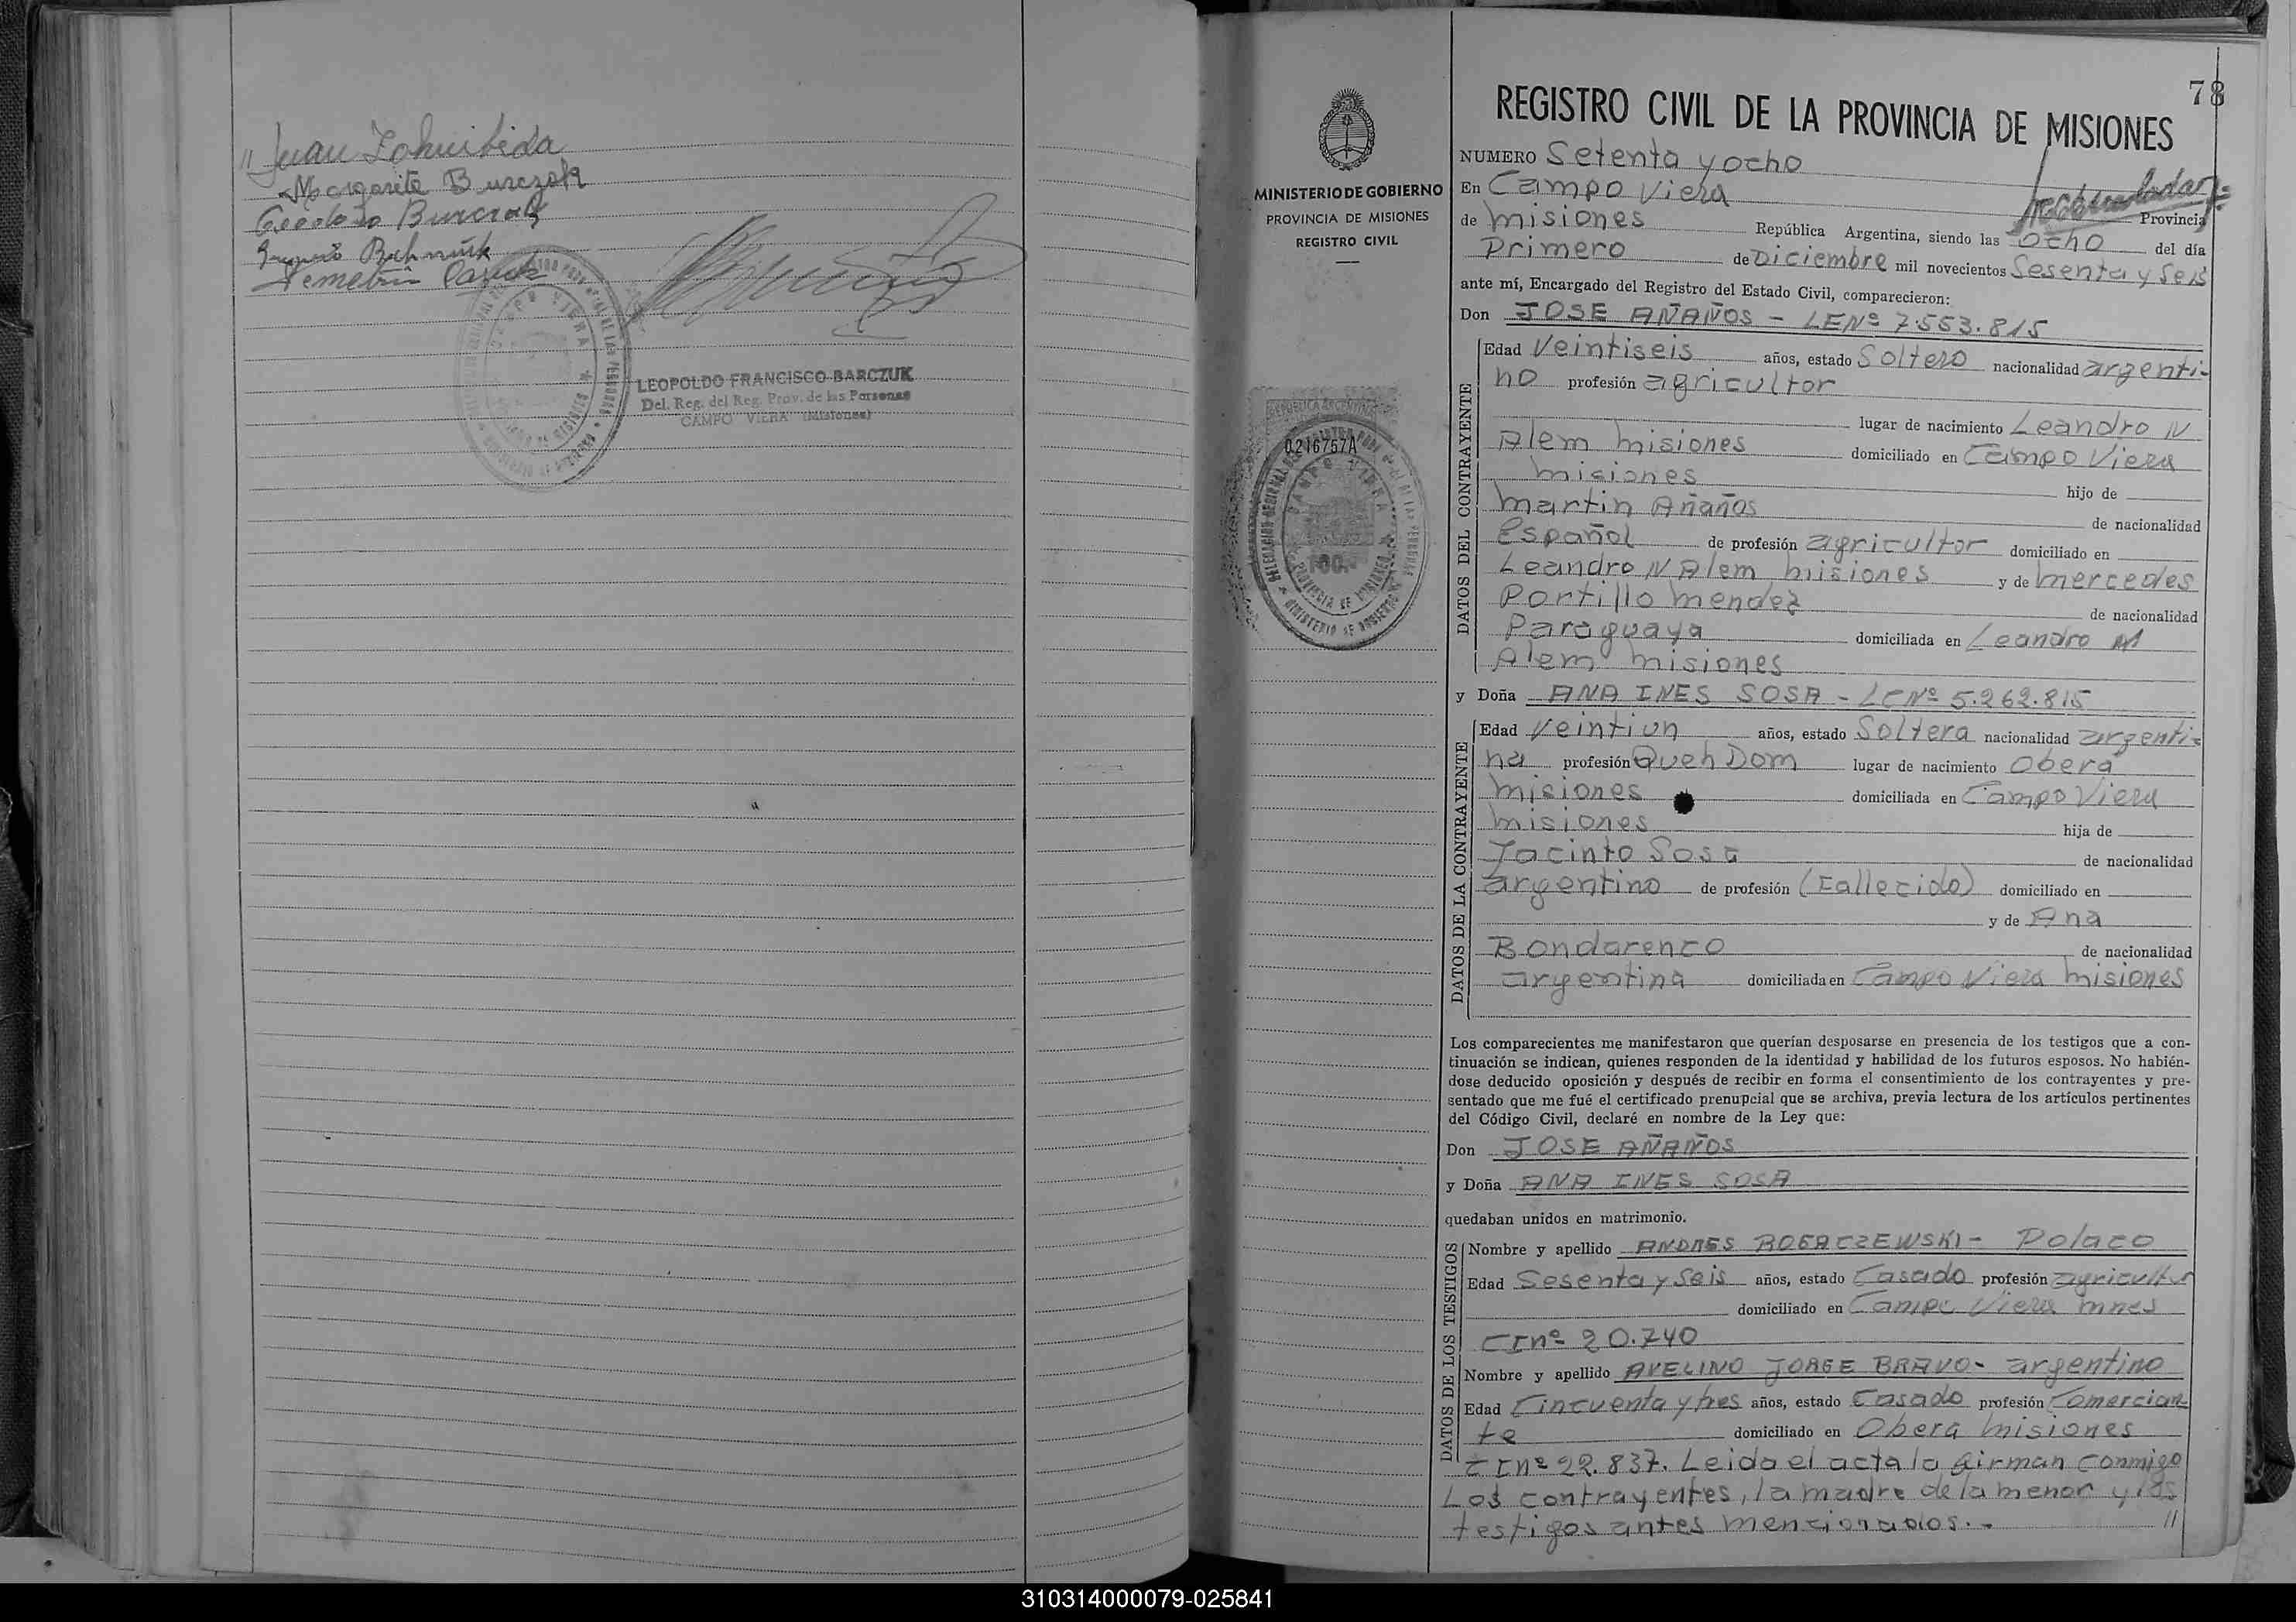 " Juan
Margarita Burczok
Teodoro Burczok
LEOPOLDO FRANCISCO BARCZUK
Del. Reg. del Reg. Prov. de las Personas
CAMPO VIERA (Misiones)
78
REGISTRO CIVIL DE LA PROVINCIA DE MISIONES
MINISTERIO DE GOBIERNO
PROVINCIA DE MISIONES
REGISTRO CIVIL
0216757A
NUMERO Setenta y ocho
En Campo Viera Provincia
de Misiones República Argentina, siendo las ocho del día
Primero de Diciembre mil novecientos Sesenta y Seis
ante mí, Encargado del Registro del Estado Civil, comparecieron:
Don JOSE AÑAÑOS - LENº 7.553.815
DATOS DEL CONTRAYENTE
Edad Veintiseis años, estado Soltero nacionalidad argenti-
no profesión agricultor
lugar de nacimiento Leandro N
Alem Misiones domiciliado en Campo Viera
Misiones hijo de
Martin Añaños de nacionalidad
Español de profesión agricultor domiciliado en
Leandro N Alem Misiones y de Mercedes
Portillo Mendez de nacionalidad
Paraguaya domiciliada en Leandro N
Alem Misiones
y Doña ANA INES SOSA - LCNº 5.262.815
DATOS DE LA CONTRAYENTE
Edad Veintiun años, estado Soltera nacionalidad argenti-
na profesión Queh Dom lugar de nacimiento Oberá
Misiones domiciliada en Campo Viera
Misiones hija de
Jacinto Sosa de nacionalidad
argentino de profesión (Fallecido) domiciliado en
y de Ana
Bondarenco de nacionalidad
argentina domiciliada en Campo Viera Misiones
Los comparecientes me manifestaron que querían desposarse en presencia de los testigos que a con-
tinuación se indican, quienes responden de la identidad y habilidad de los futuros esposos. No habién-
dose deducido oposición y después de recibir en forma el consentimiento de los contrayentes y pre-
sentado que me fué el certificado prenupcial que se archiva, previa lectura de los artículos pertinentes
del Código Civil, declaré en nombre de la Ley que:
Don JOSE AÑAÑOS
y Doña ANA INES SOSA
quedaban unidos en matrimonio.
DATOS DE LOS TESTIGOS
Nombre y apellido ANDRES ROGACZEWSKI - Polaco
Edad Sesenta y Seis años, estado Casado profesión agricultor
domiciliado en Campo Viera Mnes
CInº 20.740
Nombre y apellido AVELINO JORGE BRAVO - argentino
Edad Cincuenta y tres años, estado Casado profesión Comercian
te domiciliado en Oberá Misiones
CInº 22.837. Leida el acta la firman conmigo
Los contrayentes, la madre de la menor y los
testigos antes mencionados.- //
310314000079-025841